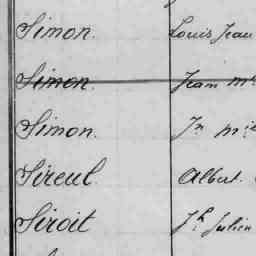 Simon. Louis Jean
Simon. Jean m
Simon. Jn
Sireul Albert.
Siroit Jh Julien